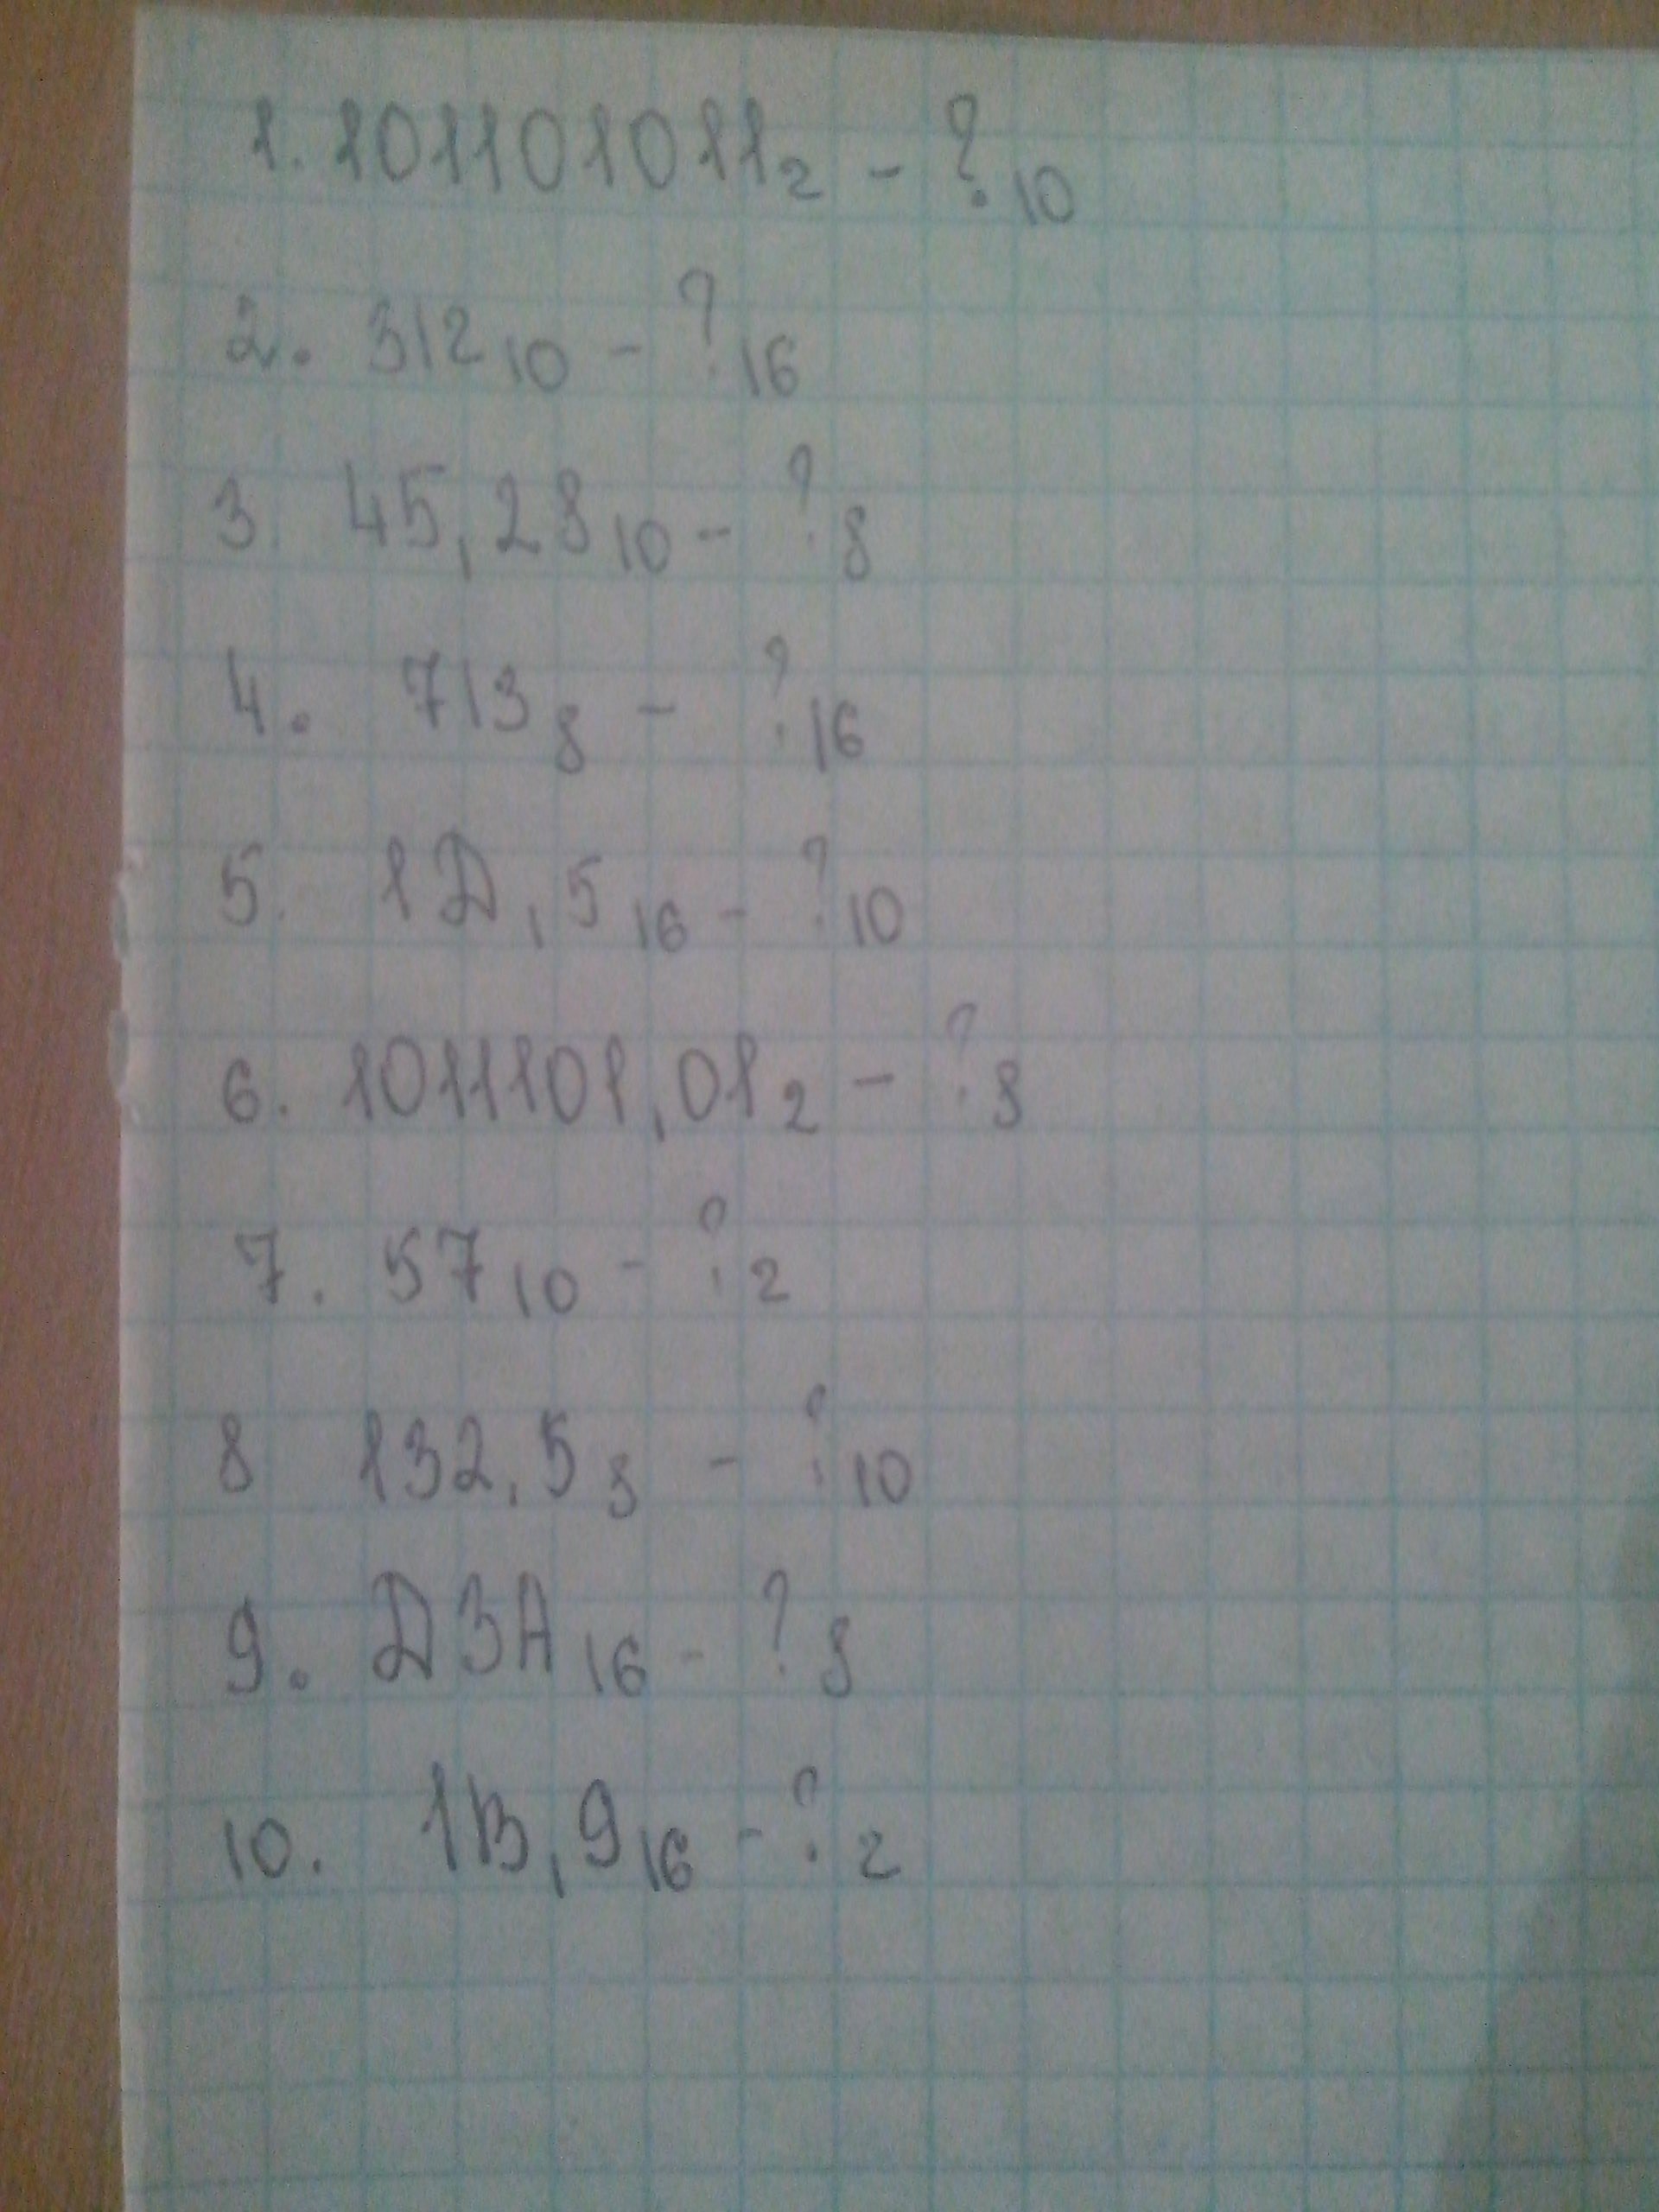 1. 101101011₂ - ?₁₀
2. 312₁₀ - ?₁₆
3. 45,28₁₀ - ?₈
4. 713₈ - ?₁₆
5. 1D,5₁₆ - ?₁₀
6. 1011101,01₂ - ?₈
7. 57₁₀ - ?₂
8 132,5₈ - ?₁₀
9. D3A₁₆ - ?₈
10. 1B,9₁₆ - ?₂